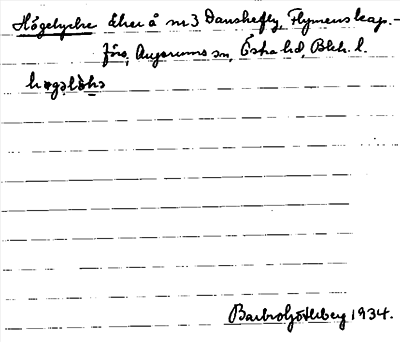 Högelycke Åker å nr 3 Danskefly, Flymens kap.-
förs, Augerums sn, Östra hd, Blek. l.
høgəlỳkə
Barbro Götleberg 1934.